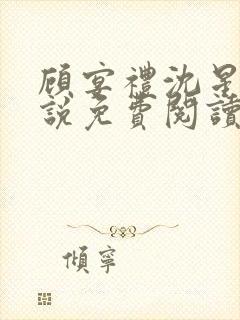 顧宴禮沈星
說免費閱讀
傾寧